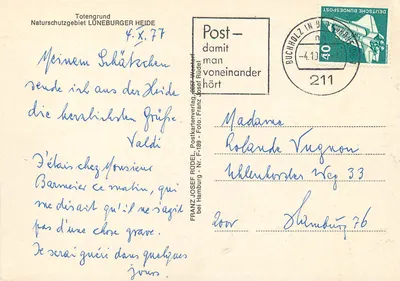 Totengrund
Naturschutzgebiet LÜNEBURGER HEIDE
4.X.77
Meinem Schätzchen
sende ich aus der Heide
die herzlichsten Grüße.
Valdi
J'étais chez Monsieur
Barmeier ce matin, qui
me disait qu'il ne s'agit
pas d'une chose grave.
Je serai guéri dans quelques
jours.
FRANZ JOSEF RÜDEL, Postkartenverlag,
bei Hamburg - Nr. F-189 - Foto: Franz Josef Rüdel
Post –
damit
man
voneinander
hört
BUCHHOLZ IN
-4.10.
211
DEUTSCHE BUNDESPOST
40
Madame
Rolande Vugnon
Uhlenhorster Weg 33
2000 Hamburg 76